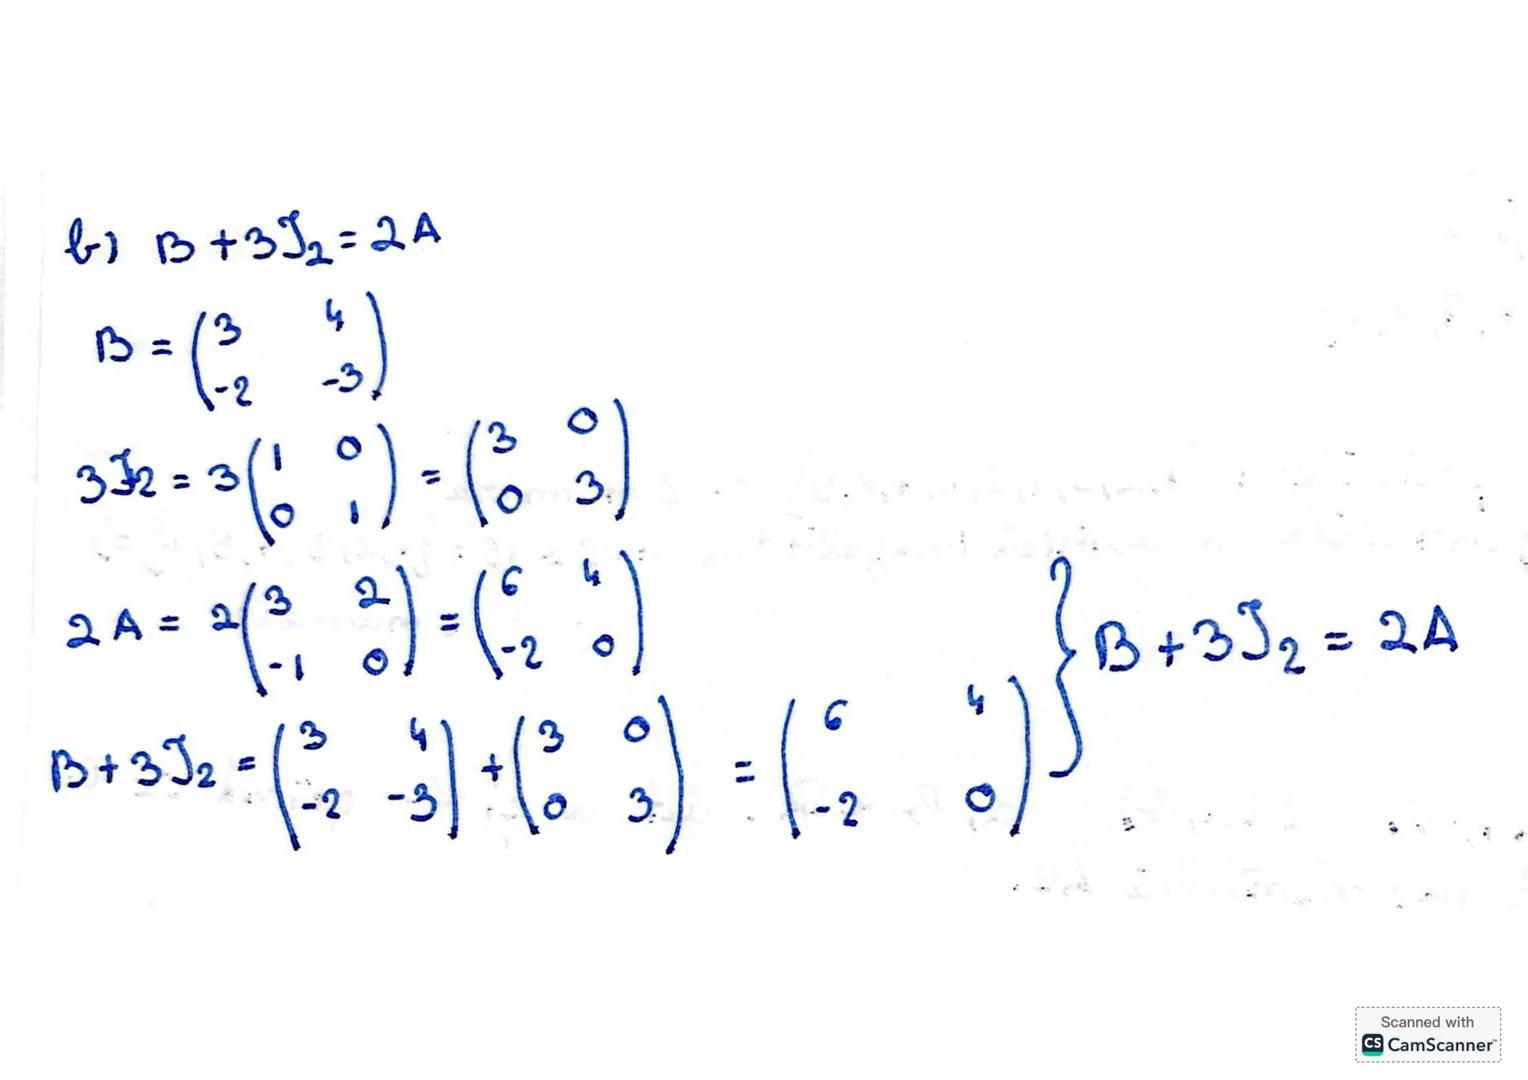 b) B + 3I₂ = 2A
B = (3 4
-2 -3)
3I₂ = 3(1 0
0 1) = (3 0
0 3)
2A = 2(3 2
-1 0) = (6 4
-2 0)
B + 3I₂ = (3 4
-2 -3) + (3 0
0 3) = (6 4
-2 0)
} B + 3I₂ = 2A
Scanned with
CS CamScanner™